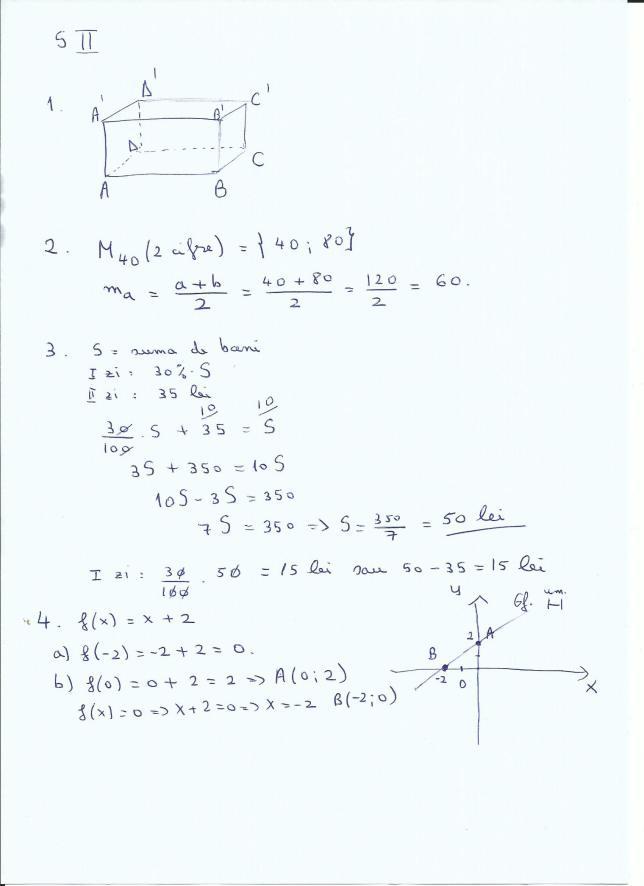 S II
1.
D'
A' B' C'
D
C
A B
2. M40 (2 cifre) = { 40 ; 80}
ma = a+b/2 = 40+80/2 = 120/2 = 60.
3. S = suma de bani
I zi : 30% · S
II zi : 35 lei
30/100 · S + 10/ 35 = 10/ S
3S + 350 = 10S
10S - 3S = 350
7S = 350 => S = 350/7 = 50 lei
I zi : 30/100 · 50 = 15 lei sau 50 - 35 = 15 lei
4. f(x) = x + 2
a) f(-2) = -2 + 2 = 0.
b) f(0) = 0 + 2 = 2 => A(0;2)
f(x) = 0 => x+2 = 0 => x = -2 B(-2;0)
y
Gf.
um.
2 A
B
-2 0
x